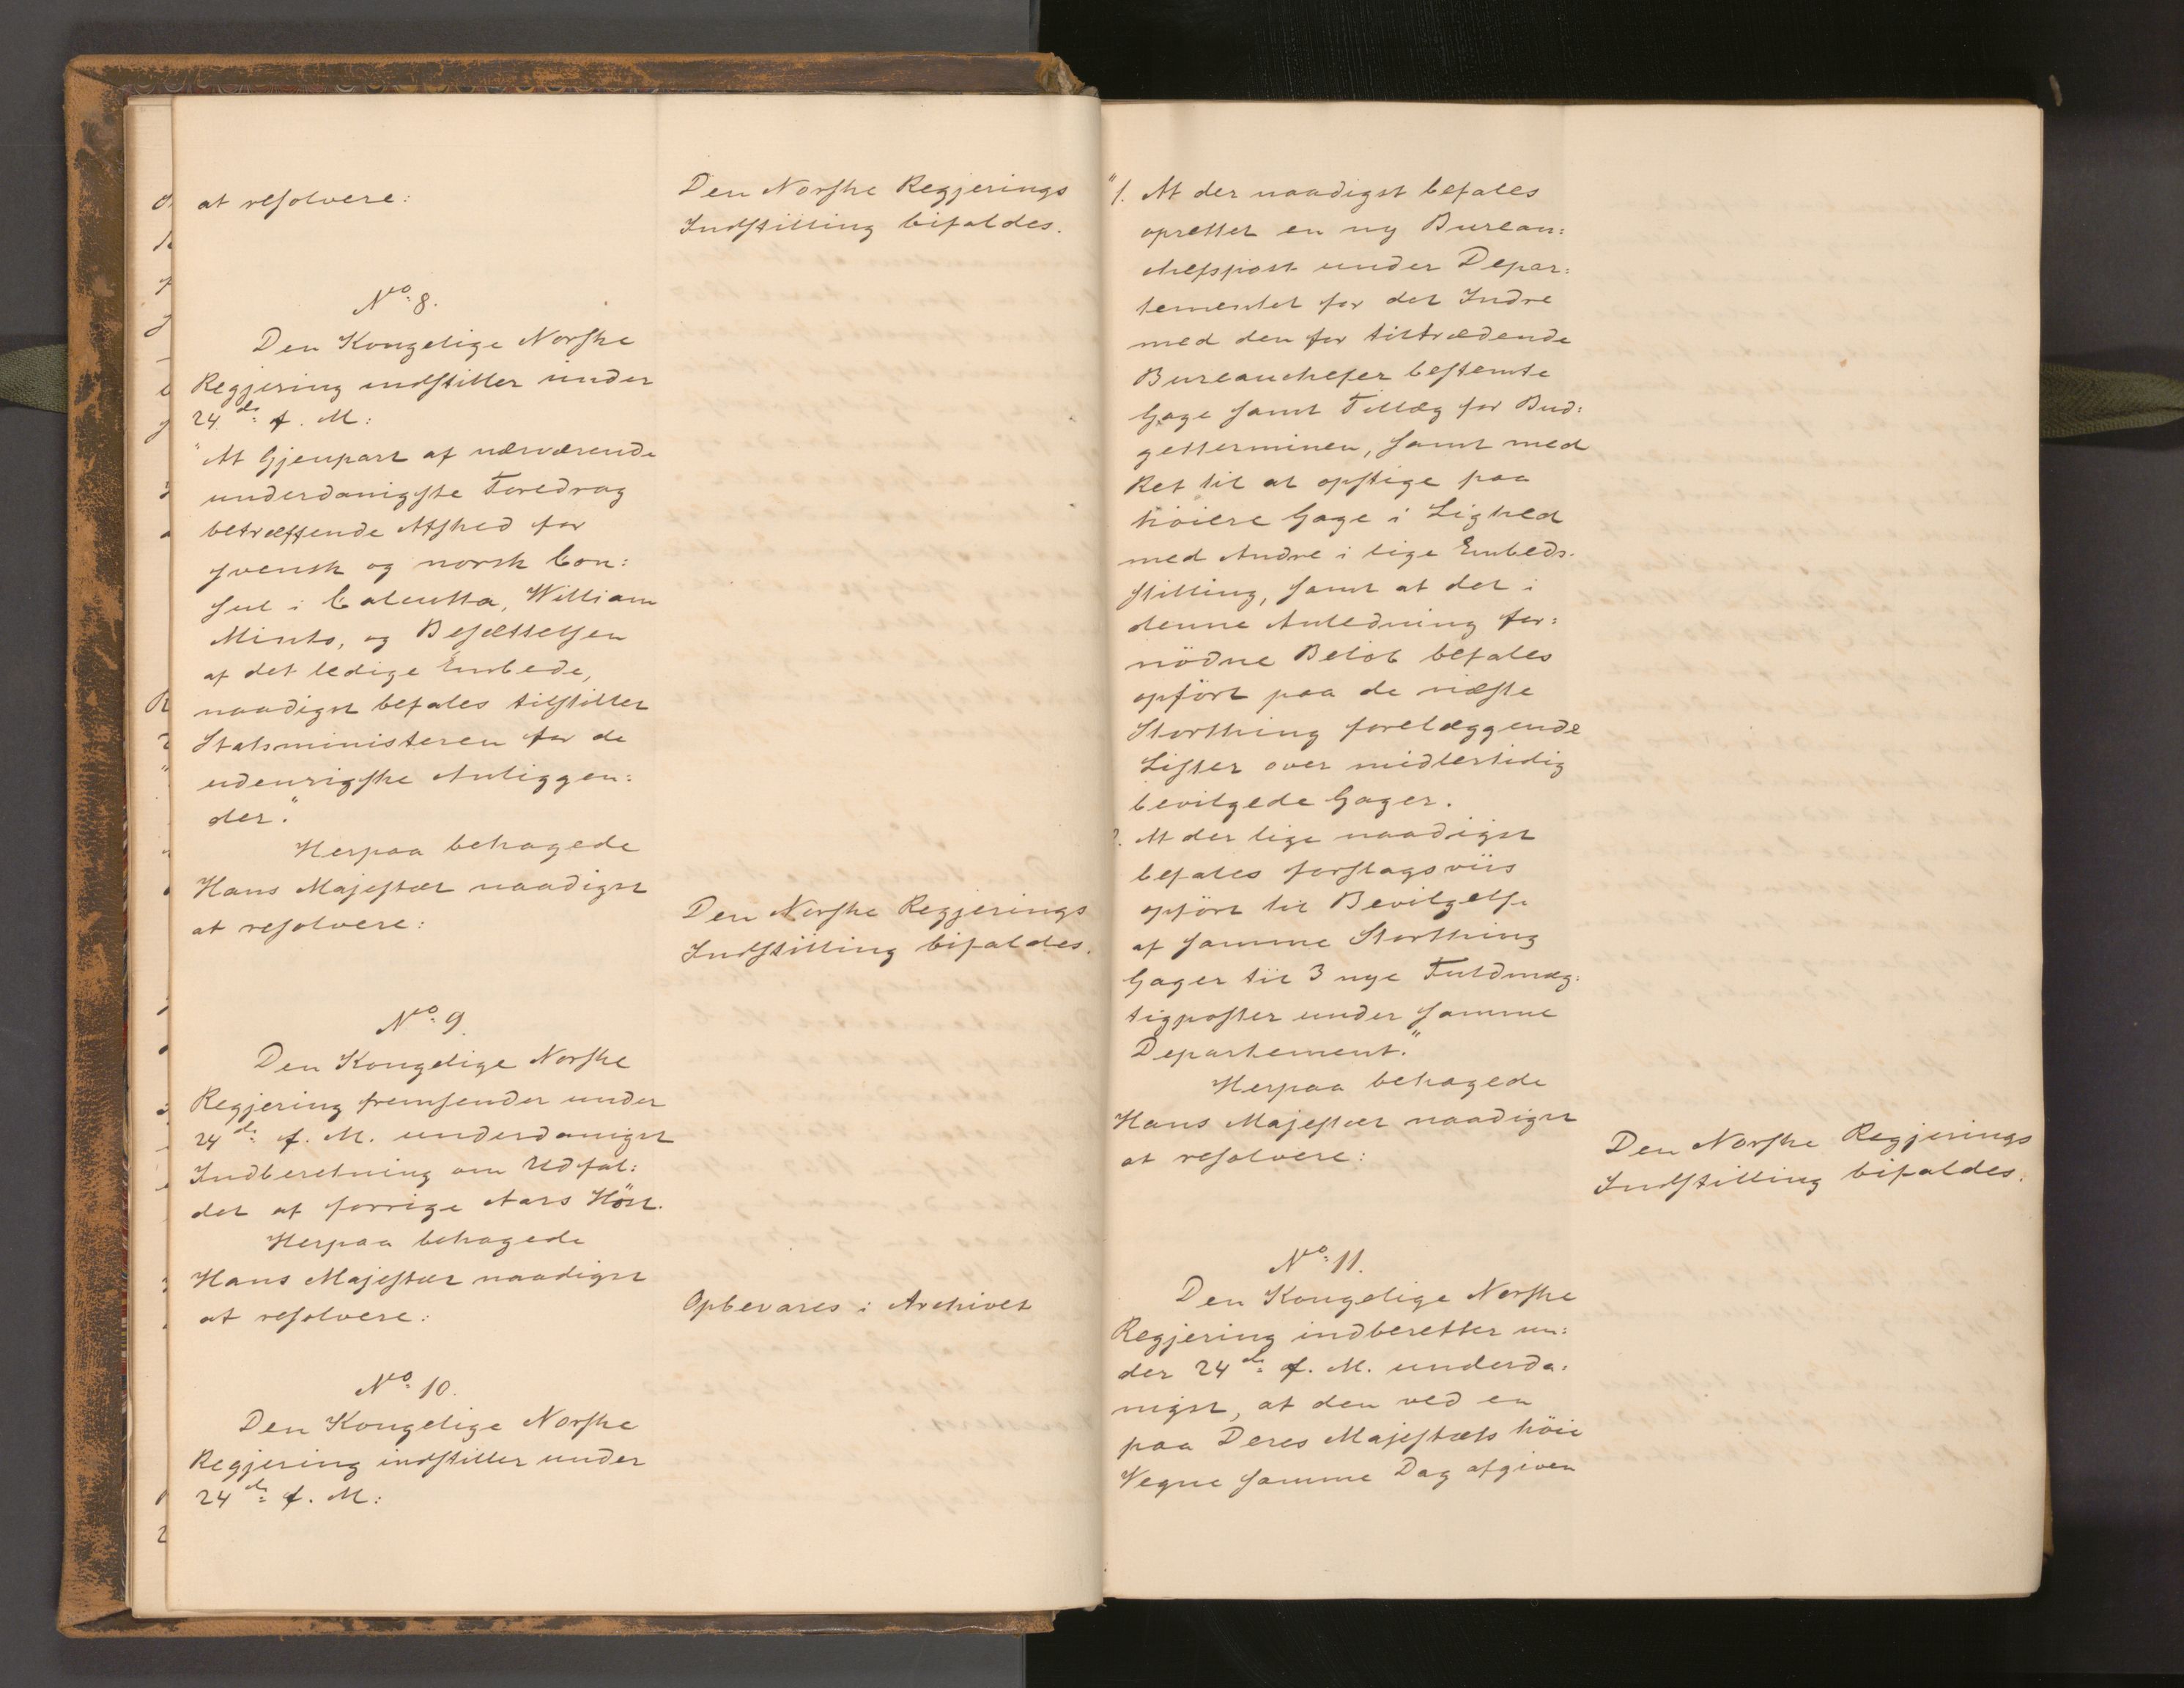 at resolvere:
Den Norske Regjerings
Indstilling bifaldes.
No. 8.
Den Kongelige Norske
Regjering indstiller under
24de f. M:
"At Gjenpart af nærværende
underdanigste Foredrag
betræffende Afsked for
svensk og norsk Con:
sul i Calcutta, William
Minto, og Besættelsen
af det ledige Embede,
naadigst befales tilstillet
Statsministeren for de
udenrigske Anliggen:
der."
Herpaa behagede
Hans Majestæt naadigst
at resolvere:
Den Norske Regjerings
Indstilling bifaldes.
No. 9.
Den Kongelige Norske
Regjering fremsender under
24de f. M. underdanigst
Indberetning om Udfal:
det af forrige Aars Höst.
Herpaa behagede
Hans Majestæt naadigst
at resolvere:
Opbevares i Archivet
No. 10.
Den Kongelige Norske
Regjering indstiller under
24de f. M:
"1. At der naadigst befales
oprettet en ny Bureau:
chefspost under Depar:
tementet for det Indre
med den for tiltrædende
Bureauchefer bestemte
Gage samt Tillæg for Bud:
getterminen, samt med
Ret til at opstige paa
höiere Gage i Lighed
med Andre i lige Embeds:
stilling, samt at det i
denne Anledning for:
nödne Belöb befales
opfört paa de næste
Storthing forelæggende
Lister over midlertidig
bevilgede Gager.
2. At der lige naadigst
befales forslagsviis
opfört til Bevilgelse
af samme Storthing
Gager til 3 nye Fuldmæg:
tigposter under samme
Departement."
Herpaa behagede
Hans Majestæt naadigst
at resolvere:
Den Norske Regjerings
Indstilling bifaldes.
No. 11.
Den Kongelige Norske
Regjering indberetter un:
der 24de f. M. underda:
nigst, at den ved en
paa Deres Majestæts höie
Vegne samme Dag afgiven